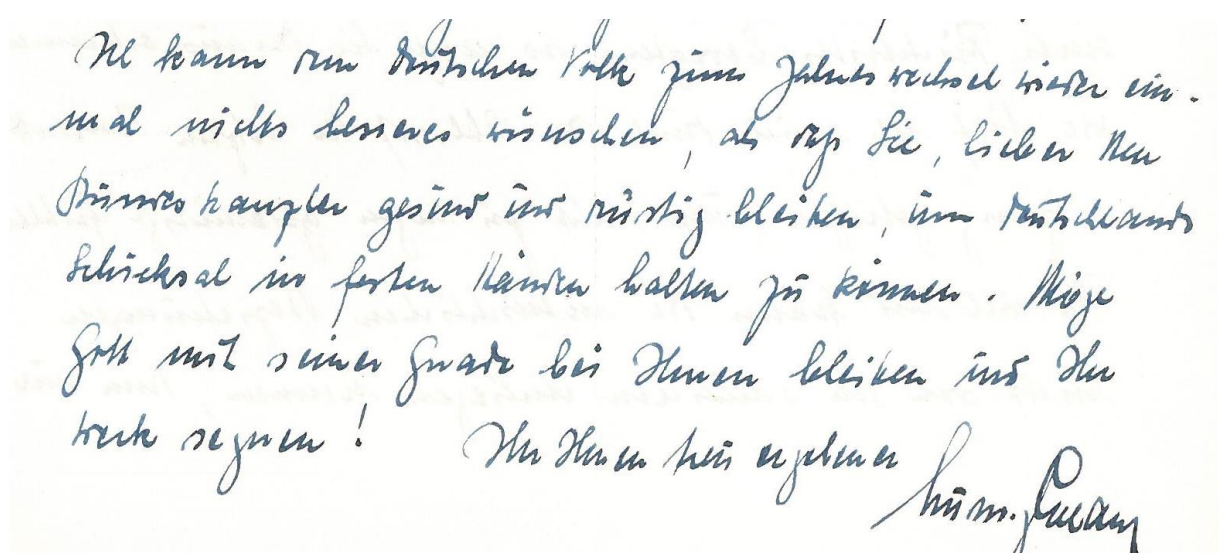 Ich kann dem deutschen Volk zum Jahreswechsel wieder ein-
mal nichts besseres wünschen, als daß Sie, lieber Herr
Bundeskanzler gesund und rüstig bleiben, um Deutschlands
Schicksal in festen Händen halten zu können. Möge
Gott mit seiner Gnade bei Ihnen bleiben und Ihr
Werk segnen! Ihr Ihnen treu ergebener